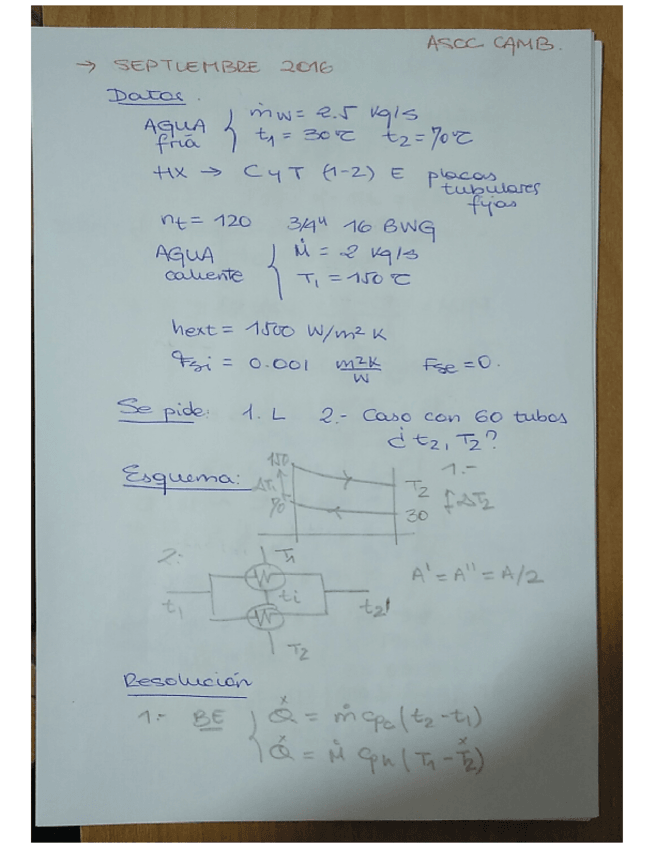 ASCC CAMB.
→ SEPTIEMBRE 2016
Datos.
AGUA fría { ṁw = 2.5 kg/s
t1 = 30°C t2 = 70°C
HX → C y T (1-2) E placas
tubulares
fijas
nt = 120 3/4" 16 BWG
AGUA caliente { Ṁ = 2 kg/s
T1 = 150°C
hext = 1500 W/m² K
rsi = 0.001 m²K/W Fse = 0.
Se pide: 1. L 2.- Caso con 60 tubos
¿ t2, T2?
Esquema:
150
ΔT1
70
T2
30
1.-
f ΔT2
2.-
T1
t1
ti
t2'
T2
A' = A'' = A/2
Resolución
1.- BE { Q̇ = ṁ cpc (t2 - t1)
Q̇ = Ṁ cph (T1 - T2)